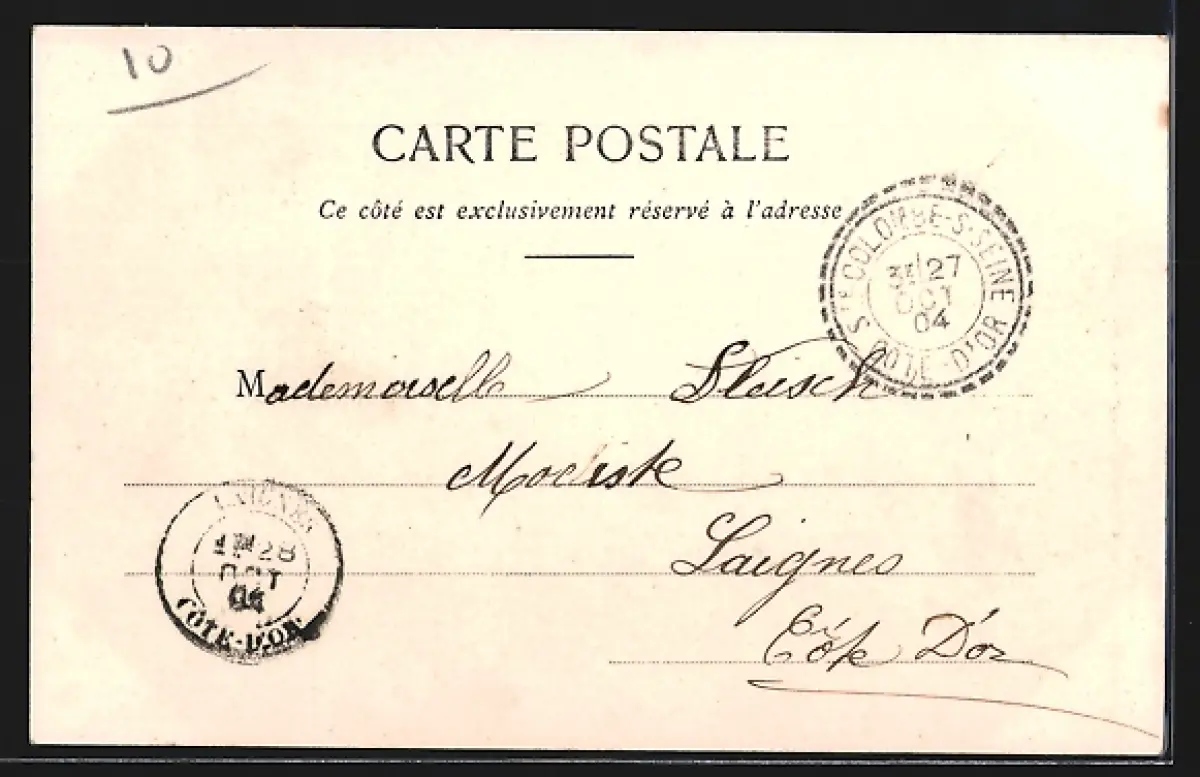 10
CARTE POSTALE
Ce côté est exclusivement réservé à l'adresse
STE COLOMBE-S-SEINE
27
OCT
04
COTE-D'OR
Mademoiselle
Modiste
Laignes
Côte D'or
LAIGNES
28
OCT
04
CÔTE-D'OR